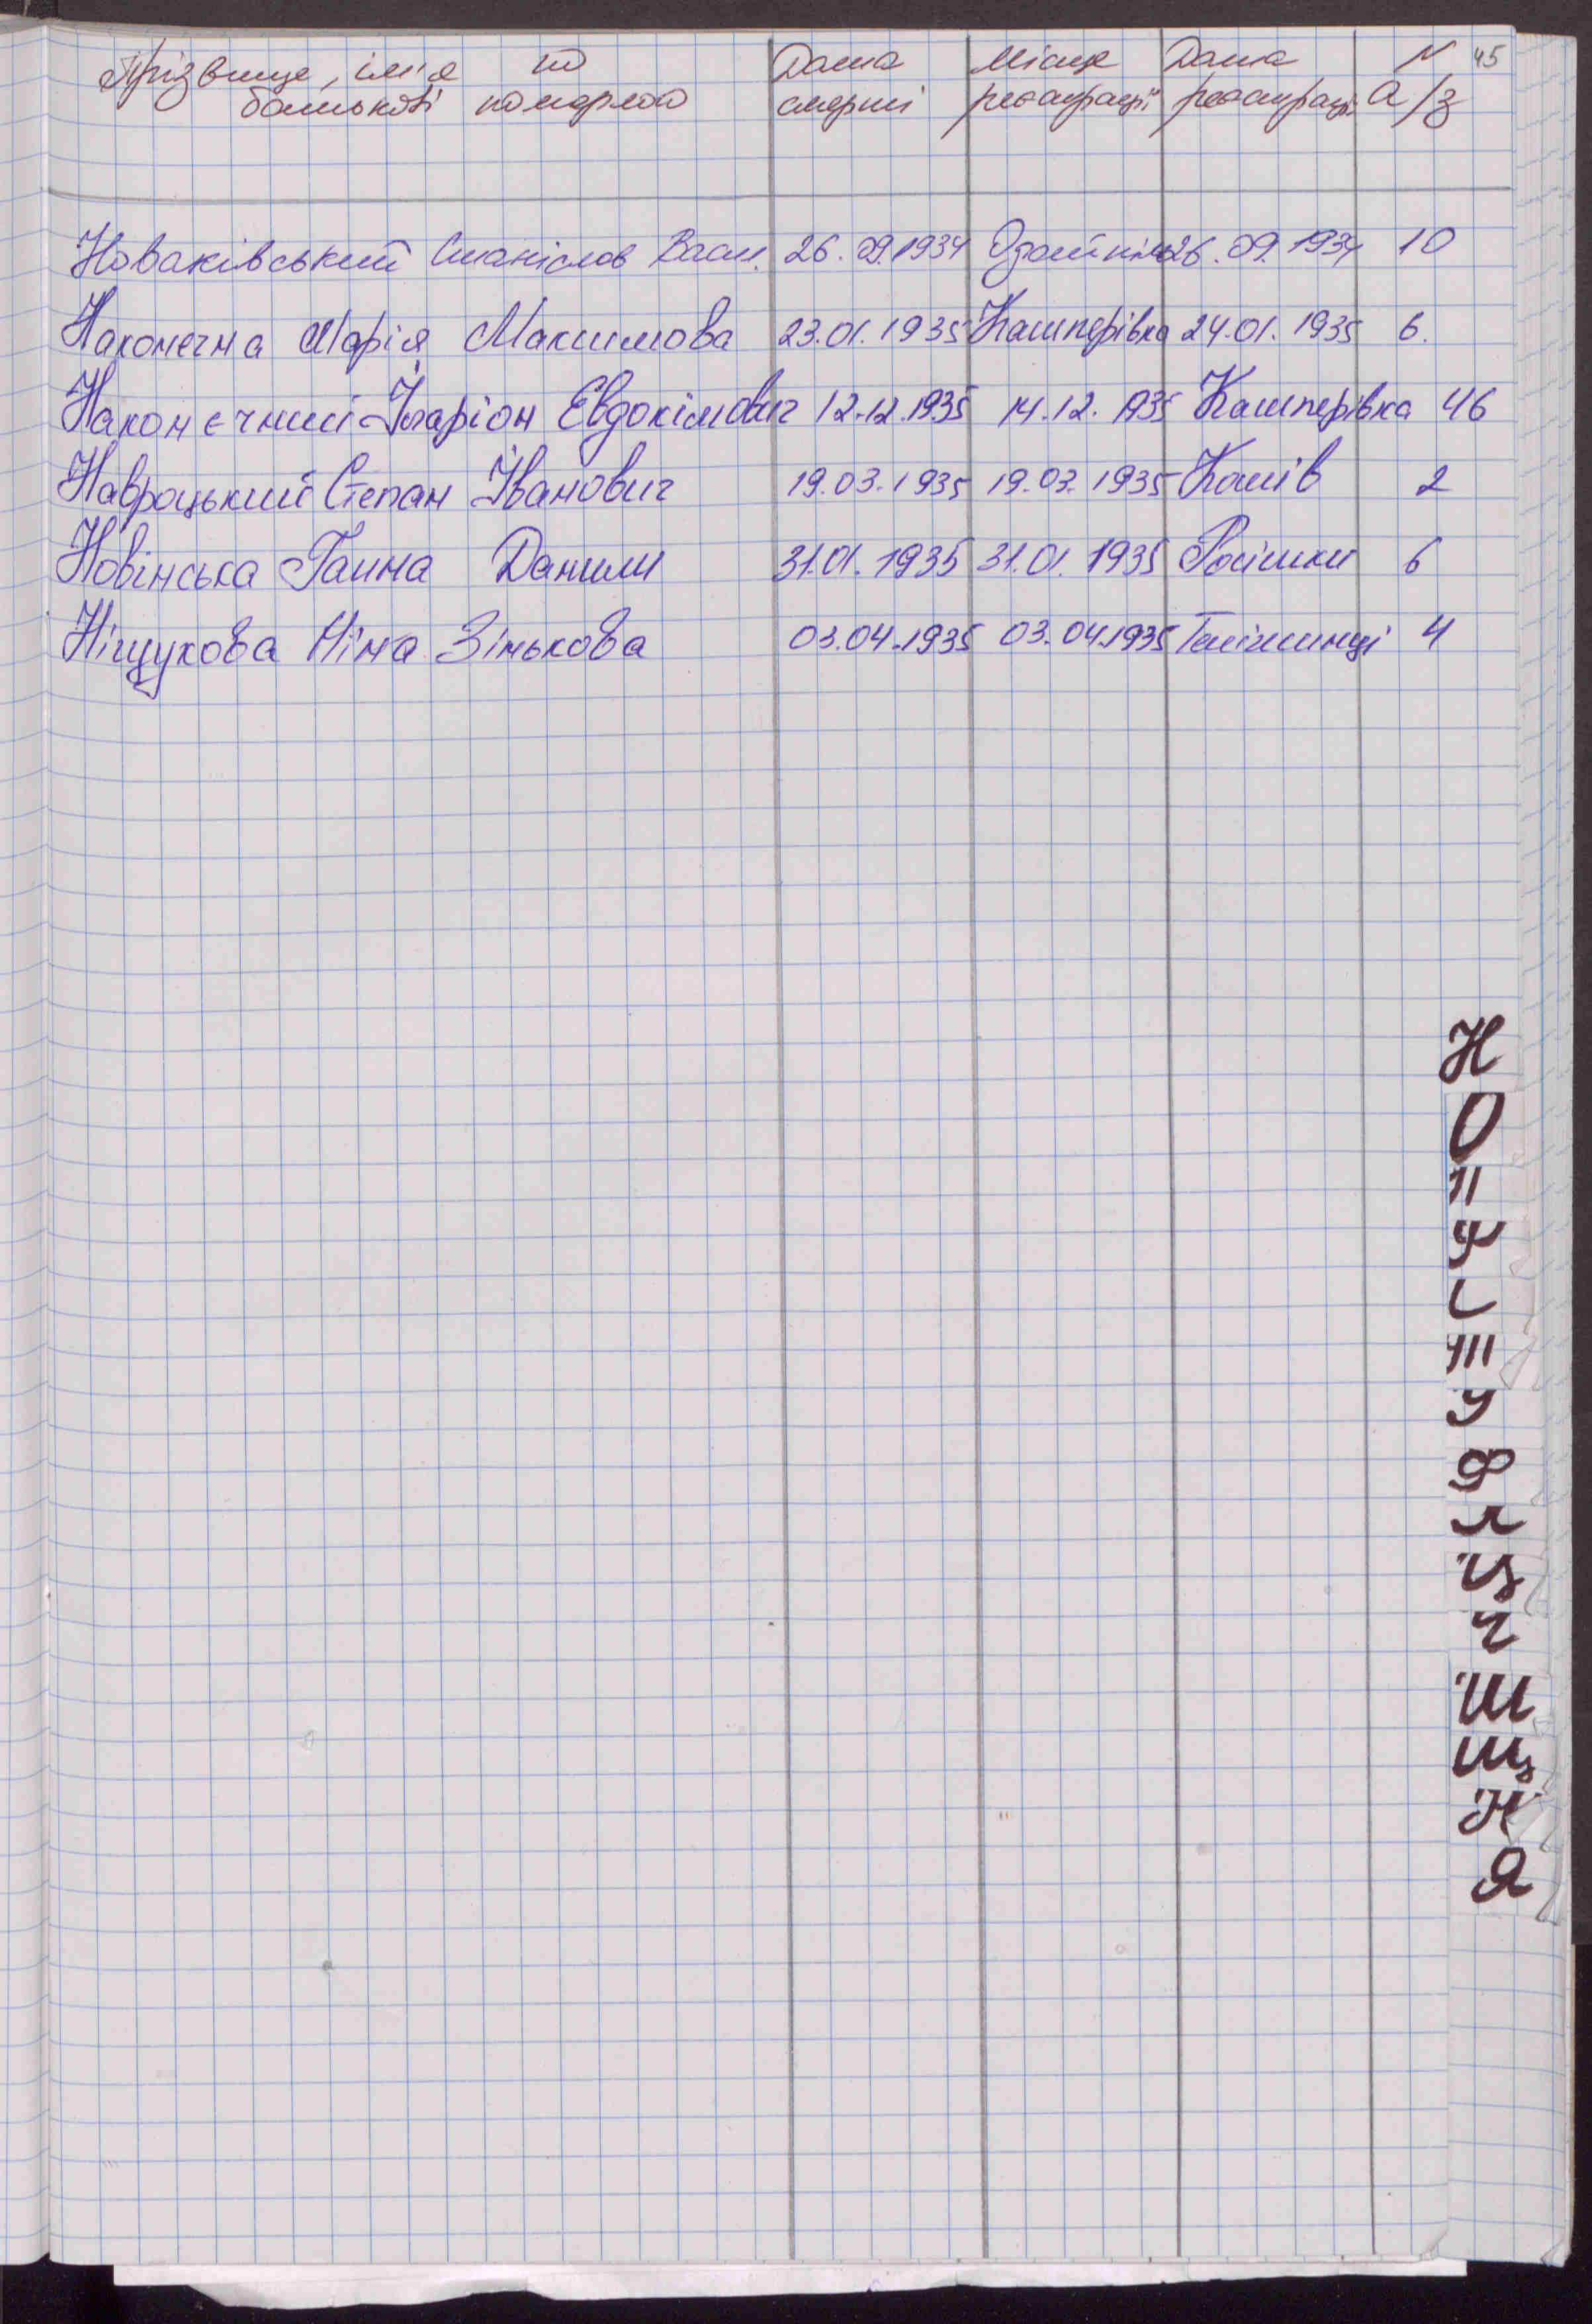 Прізвище, ім'я по Дата Місце Дата N 45
батькові померлого смерті реєстрації реєстрації а/з
Новаківський Станіслов Васил. 26.09.1934 26.09.1934 10
Наконечна Марія Максимова 23.01.1935 Кашперівка 24.01.1935 6.
Наконєчний Іларіон Євдокімович 12.12.1935 14.12.1935 Кашперівка 46
Навроцький Степан Іванович 19.03.1935 19.03.1935 2
Новінська Ганна Данили 31.01.1935 31.01.1935 Росішки 6
Ніщукова Ніна Зінькова 03.04.1935 03.04.1935 4
Н
О
П
Р
С
Т
У
Ф
Х
Ц
Ч
Ш
Щ
Ю
Я